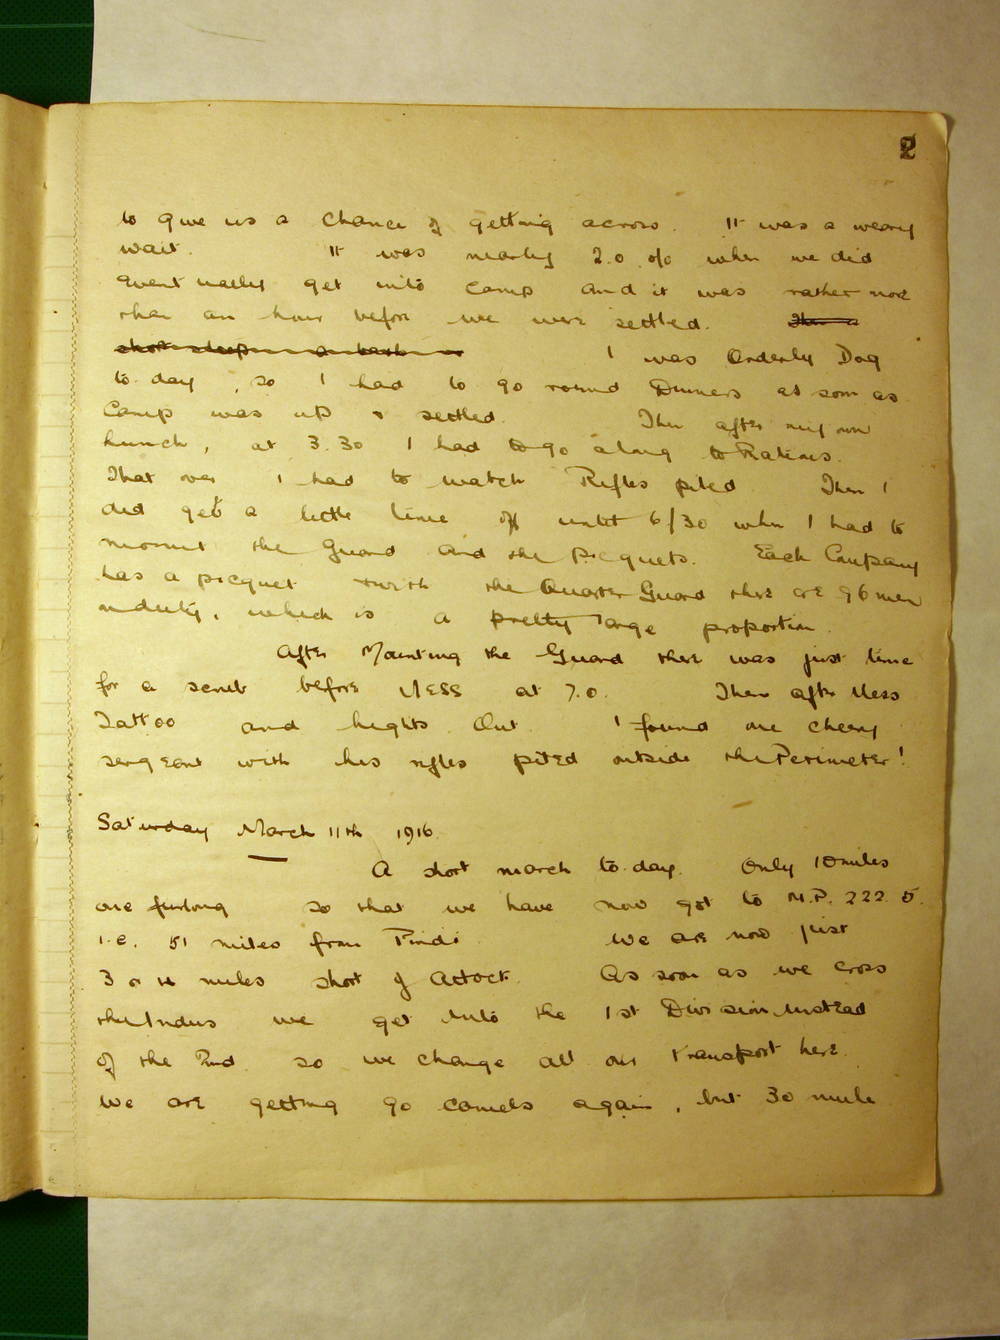 2
to give us a chance of getting across. It was a weary
wait. It was nearly 2.0 o/o when we did
eventually get into camp and it was rather more
than an hour before we were settled. Then a
short sleep a bath
I was Orderly Dog
to day, so I had to go round Dinners as soon as
camp was up & settled. Then after my own
lunch, at 3.30 I had to go along to Rations.
That over I had to watch Rifles piled. Then I
did get a little time off until 6/30 when I had to
mount the Guard and the picquets. Each Company
has a picquet & with the Quarter Guard there are 96 men
on duty, which is a pretty large proportion.
After Mounting the Guard there was just time
for a scrub before MESS at 7.0. Then after Mess
Tattoo and Lights Out. I found one cheery
sergeant with his rifles piled outside the Perimeter!
Saturday March 11th 1916.
A short march to-day. Only 10 miles
one furlong so that we have now got to M.P. 222.5.
i.e. 51 miles from Pindi. We are now just
3 or 4 miles short of Attock. As soon as we cross
the Indus we get into the 1st Division instead
of the 2nd so we change all our transport here.
We are getting 90 camels again, but 30 mule